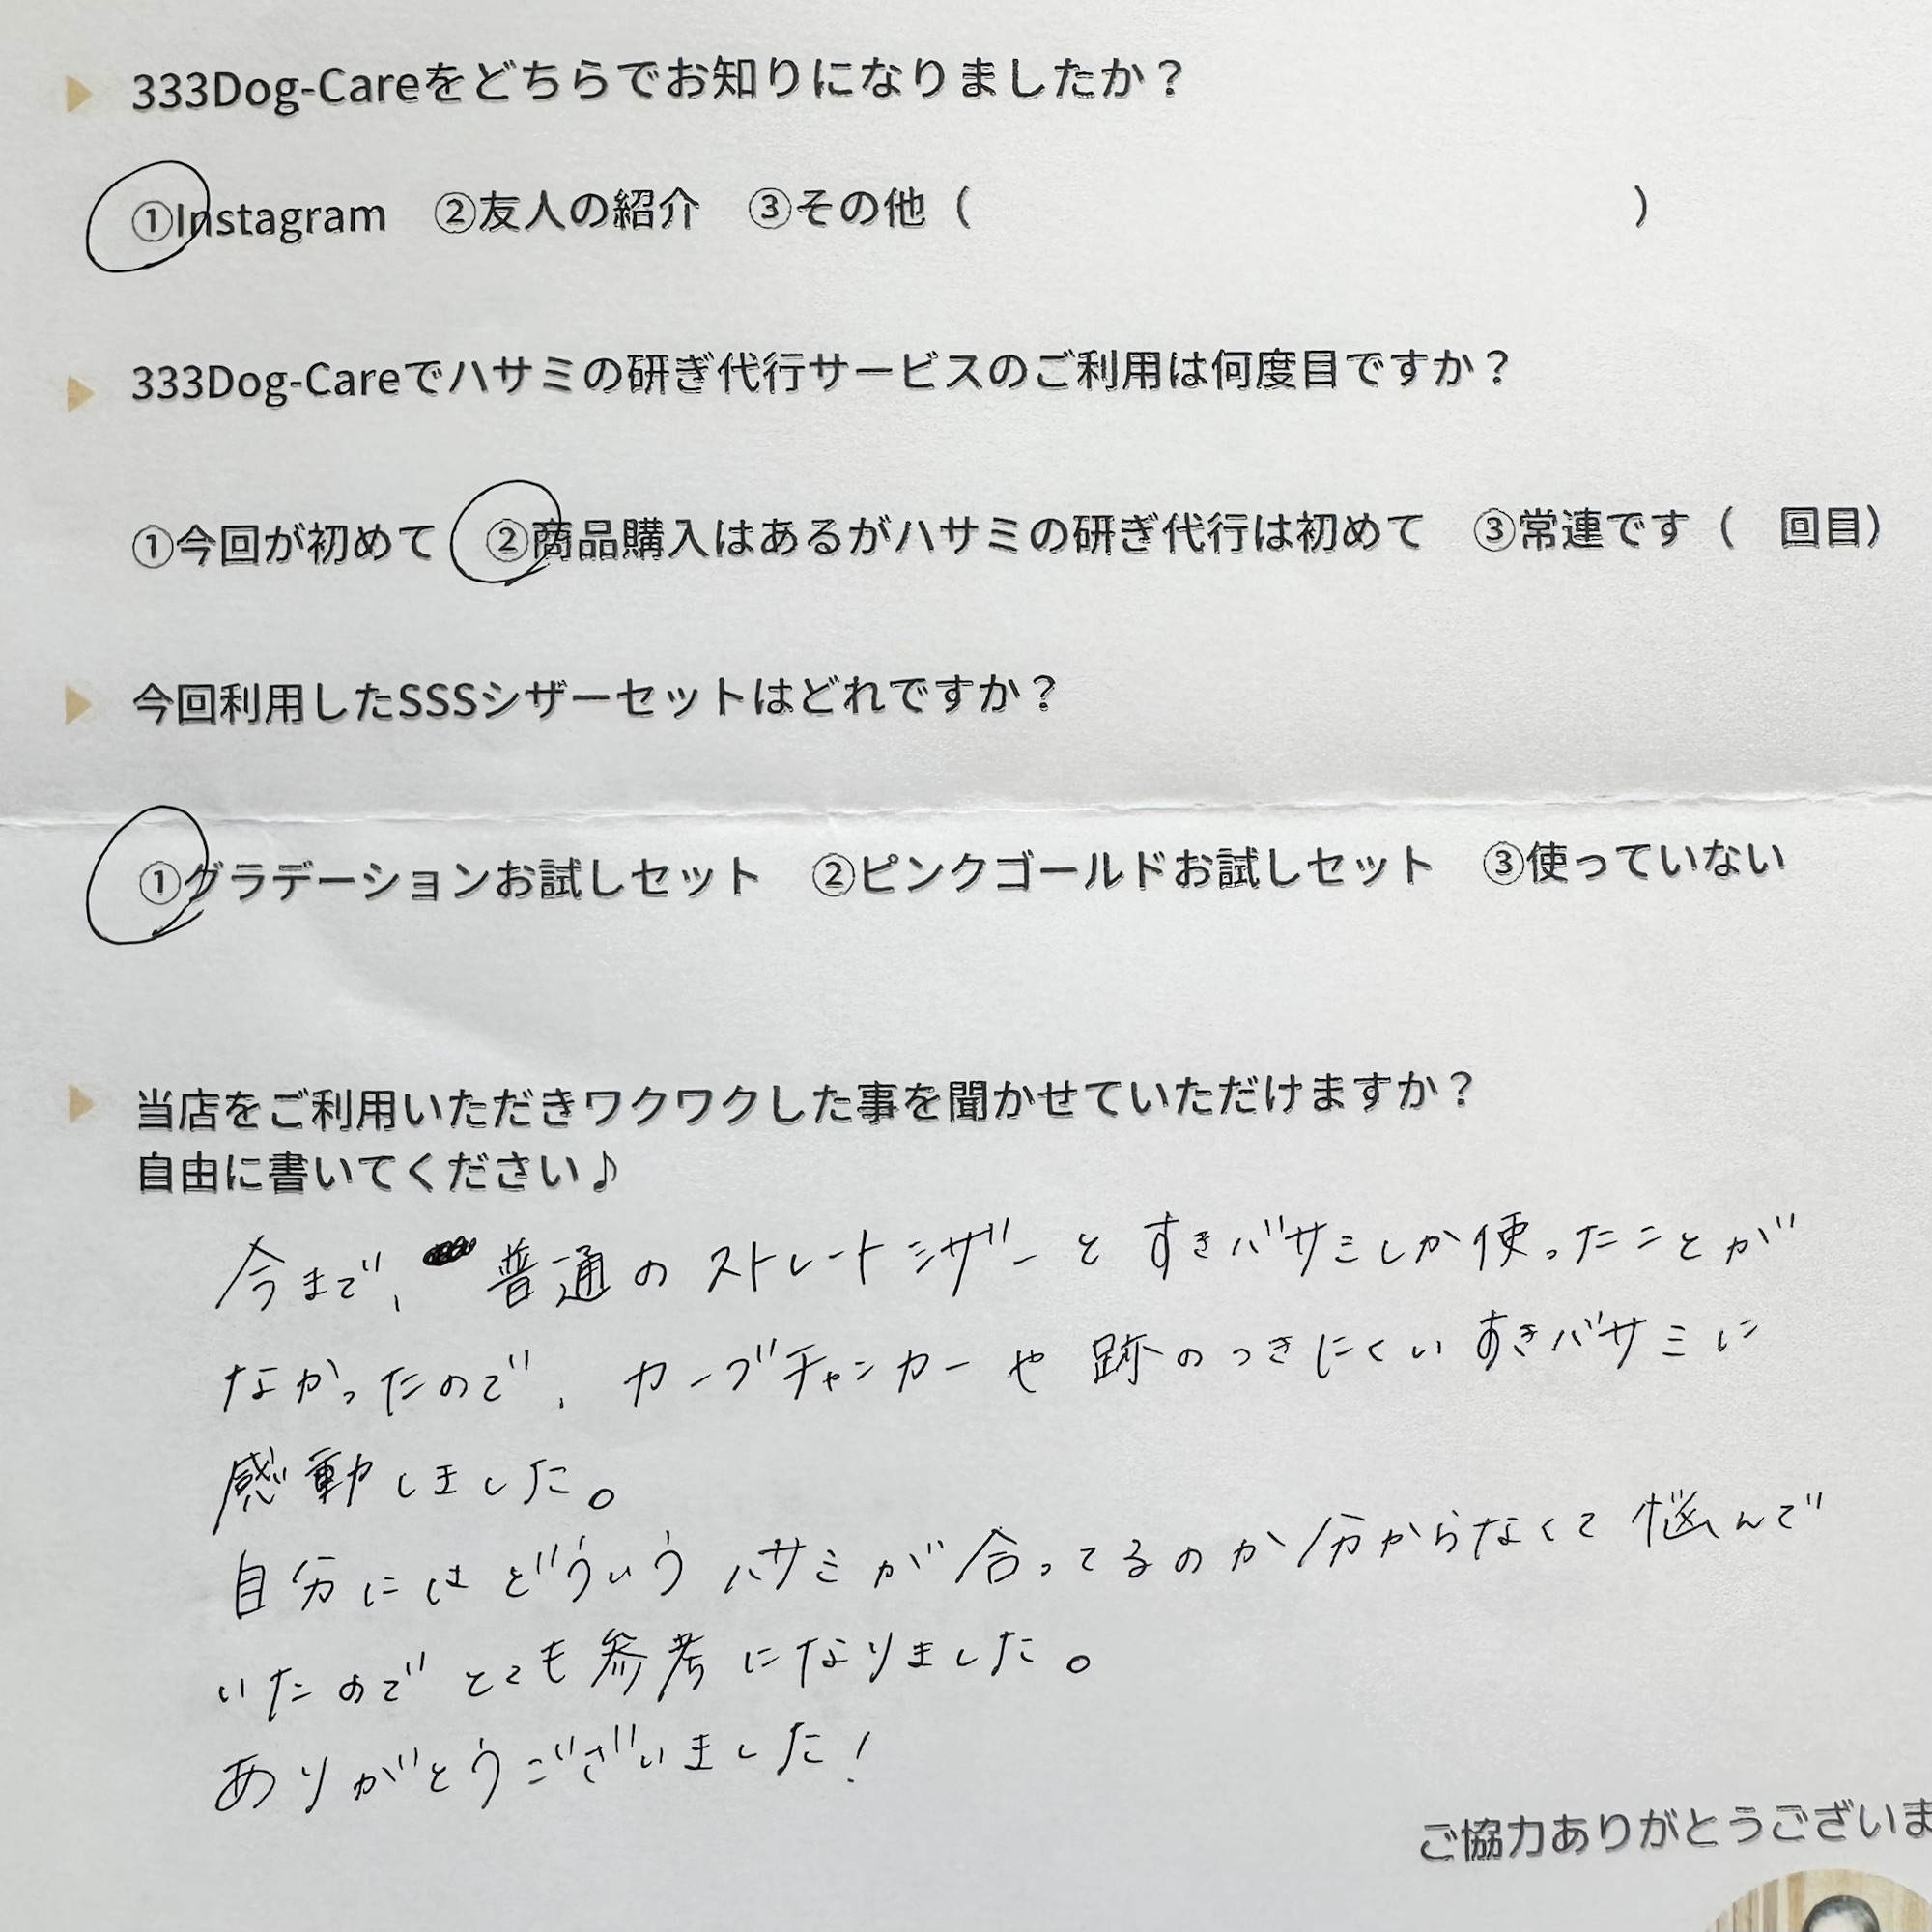 333Dog-Careをどちらでお知りになりましたか？
①Instagram ②友人の紹介 ③その他（ ）
333Dog-Careでハサミの研ぎ代行サービスのご利用は何度目ですか？
①今回が初めて ②商品購入はあるがハサミの研ぎ代行は初めて ③常連です（ 回目）
今回利用したSSSシザーセットはどれですか？
①グラデーションお試しセット ②ピンクゴールドお試しセット ③使っていない
当店をご利用いただきワクワクした事を聞かせていただけますか？
自由に書いてください♪
今まで、普通のストレートシザーとすきバサミしか使ったことが
なかったので、カーブチャンカーや跡のつきにくいすきバサミに
感動しました。
自分にはどういうハサミが合ってるのか分からなくて悩んで
いたのでとても参考になりました。
ありがとうございました!
ご協力ありがとうございま